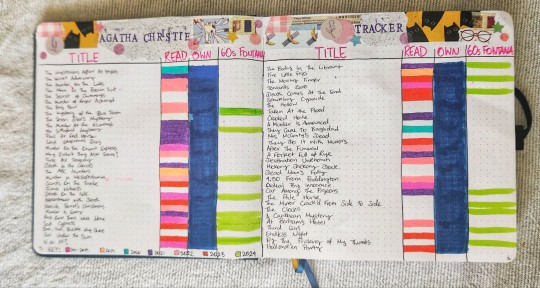 AGATHA CHRISTIE
TITLE READ OWN 60s FONTANA
The Mysterious Affair At Styles
The Secret Adversary
The Murder On The Links
The Man In The Brown Suit
The Secret of Chimneys
The Murder of Roger Ackroyd
The Big Four
The Mystery of the Blue Train
The Seven Dials Mystery
The Murder At The Vicarage
The Sittaford Mystery
Peril At End House
Lord Edgware Dies
Murder On The Orient Express
Why Didn't They Ask Evans?
Three Act Tragedy
Death In The Clouds
The ABC Murders
Murder in Mesopotamia
Cards On The Table
Dumb Witness
Death On The Nile
Appointment with Death
Hercule Poirot's Christmas
Murder is Easy
And Then There Were None
Sad Cypress
One, Two, Buckle My Shoe
Evil Under The Sun
N or M?
2022 2023 2024
TRACKER
TITLE READ OWN 60s FONTANA
The Body In The Library
Five Little Pigs
The Moving Finger
Towards Zero
Death Comes As The End
Sparkling Cyanide
The Hollow
Taken At The Flood
Crooked House
A Murder is Announced
They Came To Baghdad
Mrs McGinty's Dead
They Do It With Mirrors
After The Funeral
A Pocket Full of Rye
Destination Unknown
Hickory Dickory Dock
Dead Man's Folly
4.50 From Paddington
Ordeal By Innocence
Cat Among The Pigeons
The Pale Horse
The Mirror Crack'd From Side To Side
The Clocks
A Caribbean Mystery
At Bertram's Hotel
Third Girl
Endless Night
By The Pricking of My Thumbs
Hallowe'en Party